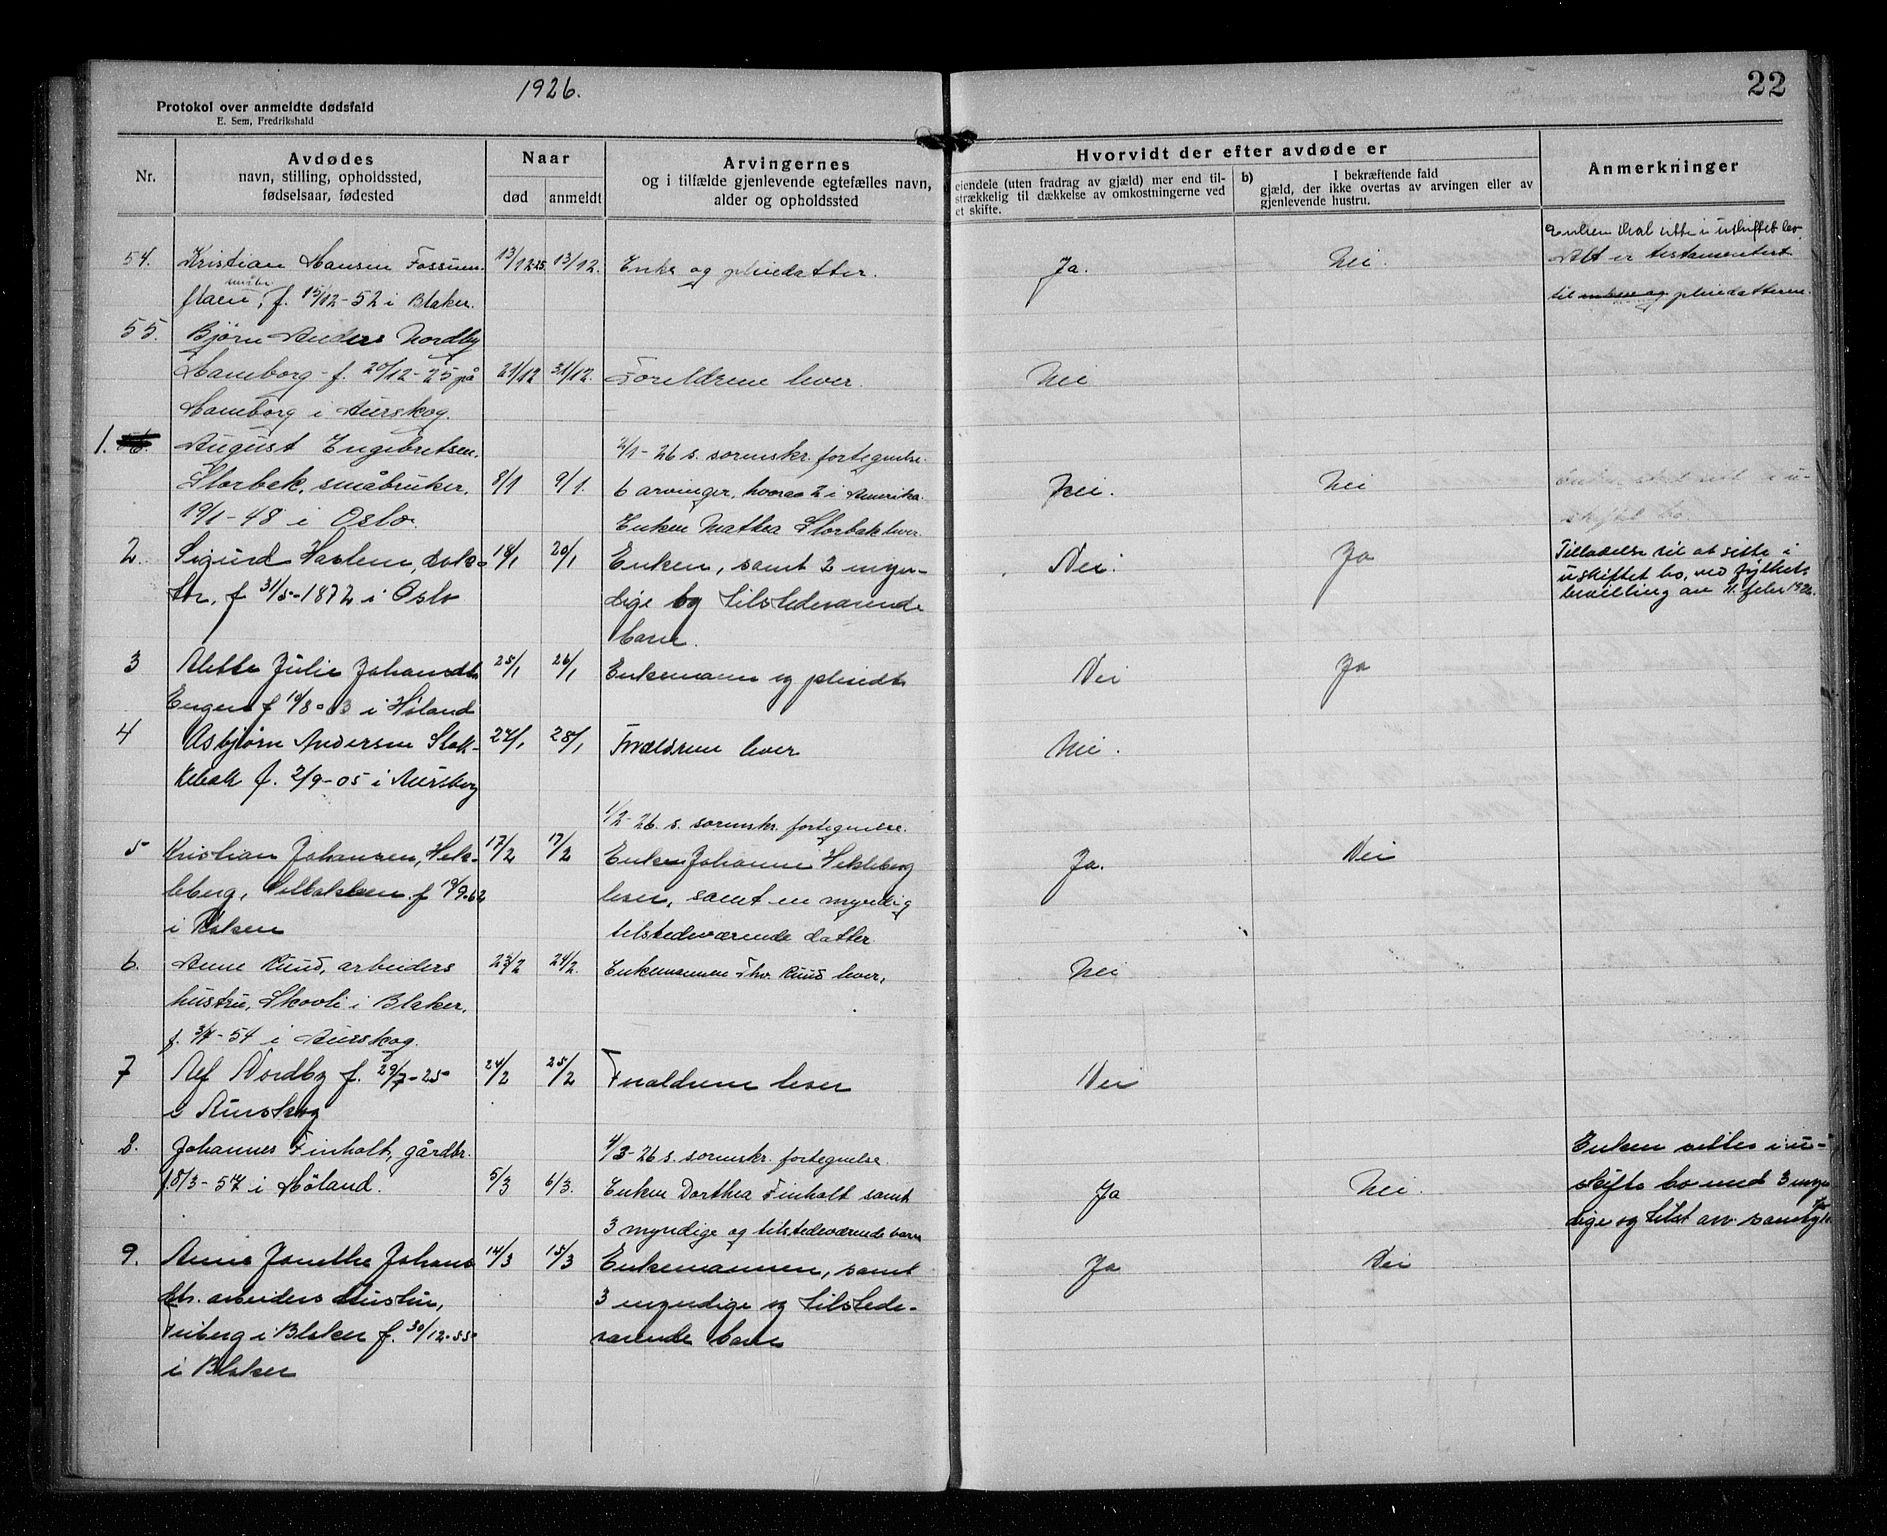 1926.
22
Protokol over anmeldte dødsfald
E. Sem, Fredrikshald
Nr.
Avdødes
navn, stilling, opholdssted,
fødselsaar, fødested
Naar
død
anmeldt
Arvingernes
og i tilfælde gjenlevende egtefælles navn,
alder og opholdssted
Hvorvidt der efter avdøde er
eiendele (uten fradrag av gjæld) mer end til-
strækkelig til dækkelse av omkostningerne ved
et skifte.
b) I bekræftende fald
gjæld, der ikke overtas av arvingen eller av
gjenlevende hustru.
Anmerkninger
54. Kristian Hansen Fossum 13/12-25 13/12. Enke og pleiedatter. Ja. Nei.
f. 15/12-52 i Blaker.
Enken skal sitte i uskiftet bo.
Alt er testamentert
til enken og pleiedatteren.
55. Bjørn Anders Nordby
Haneborg - f. 20/12-25 på 21/12 31/12. Foreldrene lever. Nei
Haneborg i Aurskog.
1. 56. August Engebretsen 2/1-26 s. sorenskr. fortegnelse.
Storbek, småbruker, 8/1 9/1. 6 arvinger, hvorav 2 i Amerika. Nei. Nei
19/1-48 i Oslo. Enken Mathea Storbak lever.
skiftet bo
2. Sigurd Harlem, dok- 18/1 20/1 Enken, samt 2 myn- Nei. Ja
tor, f 31/5-1872 i Oslo dige og tilstedeværende
barn.
Tilladelse til at sitte i
uskiftet bo, ved fylkets
bevilling av 11. febr 1926.
3 Alette Julie Johansdt. 25/1 26/1 Enkemann og pleiedt. Nei Ja
Enger f 14/8-03 i Høland
4 Asbjørn Andersen Stok- 27/1 28/1 Forældrene lever Nei.
kebæk f. 2/9-05 i Aurskog
1/2-26. s. sorenskr. fortegnelse.
5 Kristian Johansen, Hek- 17/2 17/2 Enken Johanne Hekleberg Ja. Nei
leberg, f 19/9-62 lever, samt en myndig
i Blaker tilstedeværende datter
6. Anne Ruud, arbeiders 23/2 24/2. Enkemannen Thv. Ruud lever, Nei
hustru, Skovli i Blaker,
f. 3/4-54 i Aurskog.
7 Alf Nordby f. 29/7-25 24/2 25/2 Forældrene lever Nei
i Aurskog
8. Johannes Finholt, gårdbr. 4/3-26 s. sorenskr. fortegnelse.
f. 8/3-57 i Høland. 5/3 6/3. Enken Dorthea Finholt samt Ja Nei.
3 myndige og tilstedeværende barn
Enken sittes i u-
skifte bo med 3 myn
dige og tilst arv. samtyk
9. Anne Jonethe Johans 14/3 15/3 Enkemannen, samt Ja Nei
dtr. arbeiders hustru, 3 myndige og tilstede-
i Blaker f. 30/12-55 værende barn
i Blaker